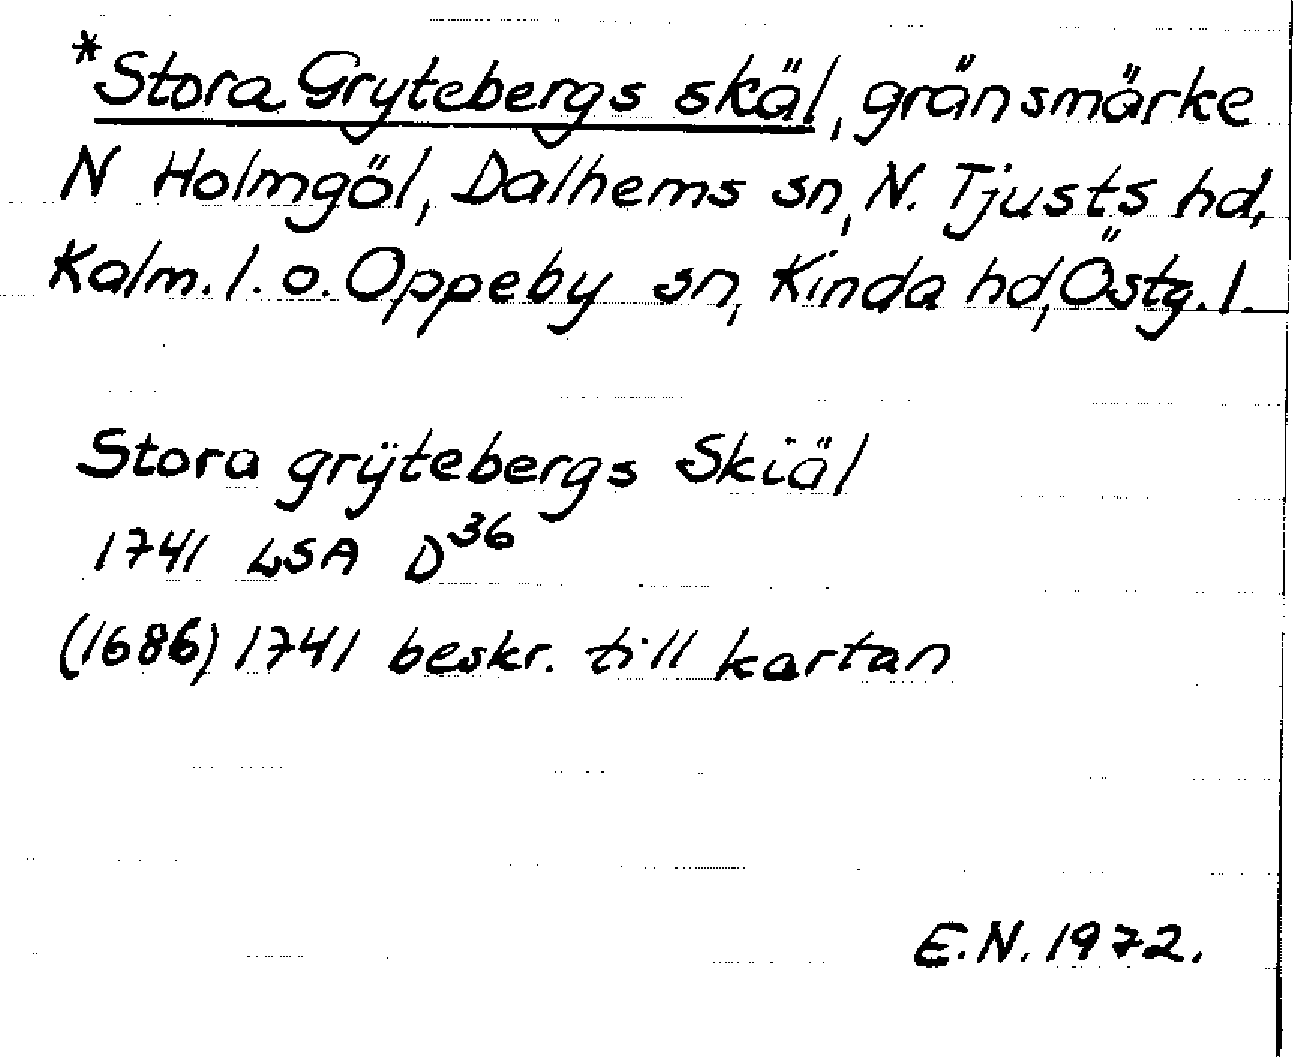 *Stora Grytebergs skäl, gränsmärke
N Holmgöl, Dalhems sn, N. Tjusts hd,
Kalm. l. o. Oppeby sn, Kinda hd, Östg. l.
Stora grÿtebergs Skiäl
1741 LSA D³⁶
(1686) 1741 beskr. till kartan
E.N. 1972.